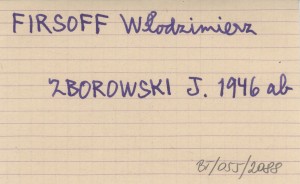 FIRSOFF Włodzimierz
ZBOROWSKI J. 1946 ab
BJ/055/2088